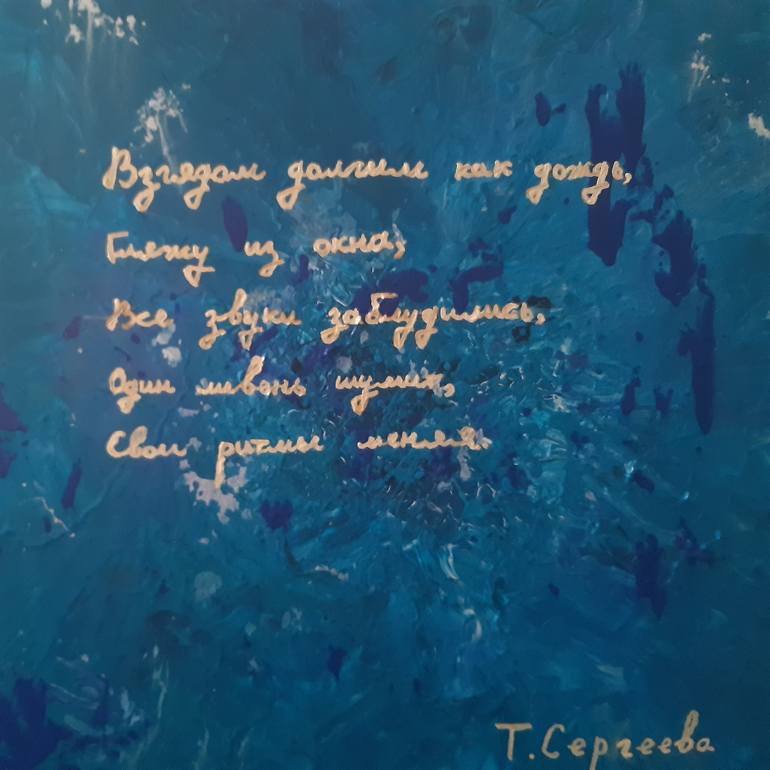 Взглядом долгим как дождь,
Гляжу из окна,
Все звуки заблудились,
Один ливень шумит,
Свои ритмы меняя.
Т. Сергеева